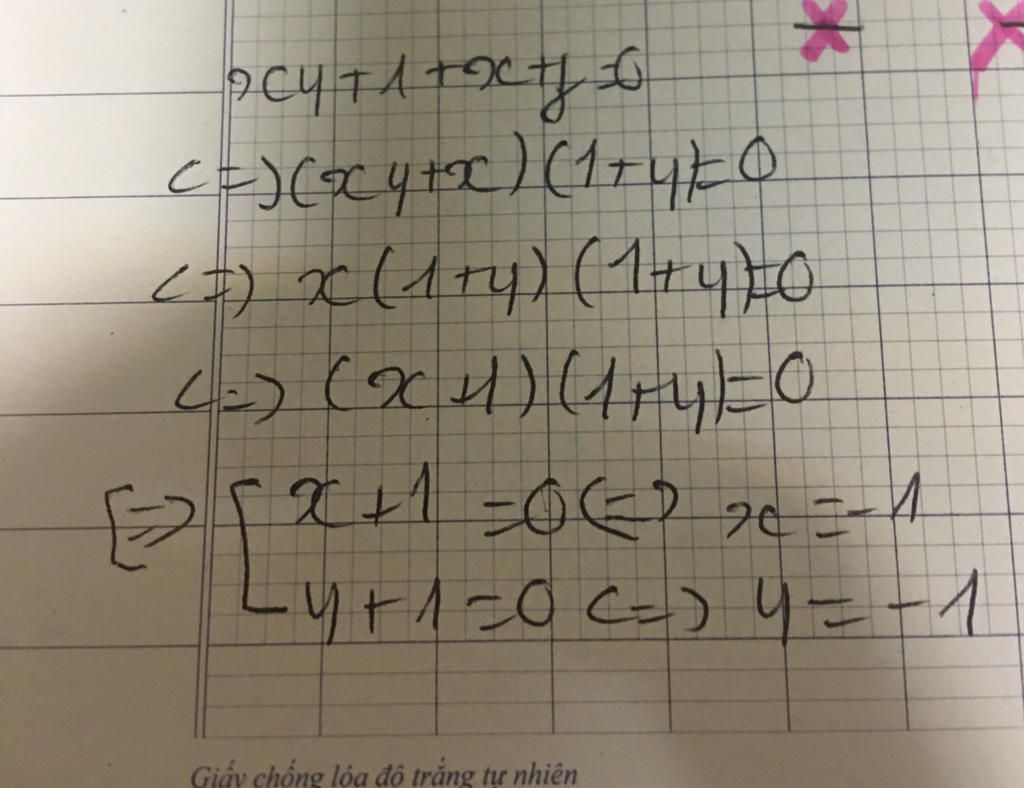 xy+1+x+y=0
<=>(xy+x)(1+y)=0
<=> x(1+y)(1+y)=0
<=> (x+1)(1+y)=0
[=> [ x+1=0 <=> x=-1
y+1=0 <=> y=-1
Giấy chống lóa độ trắng tự nhiên